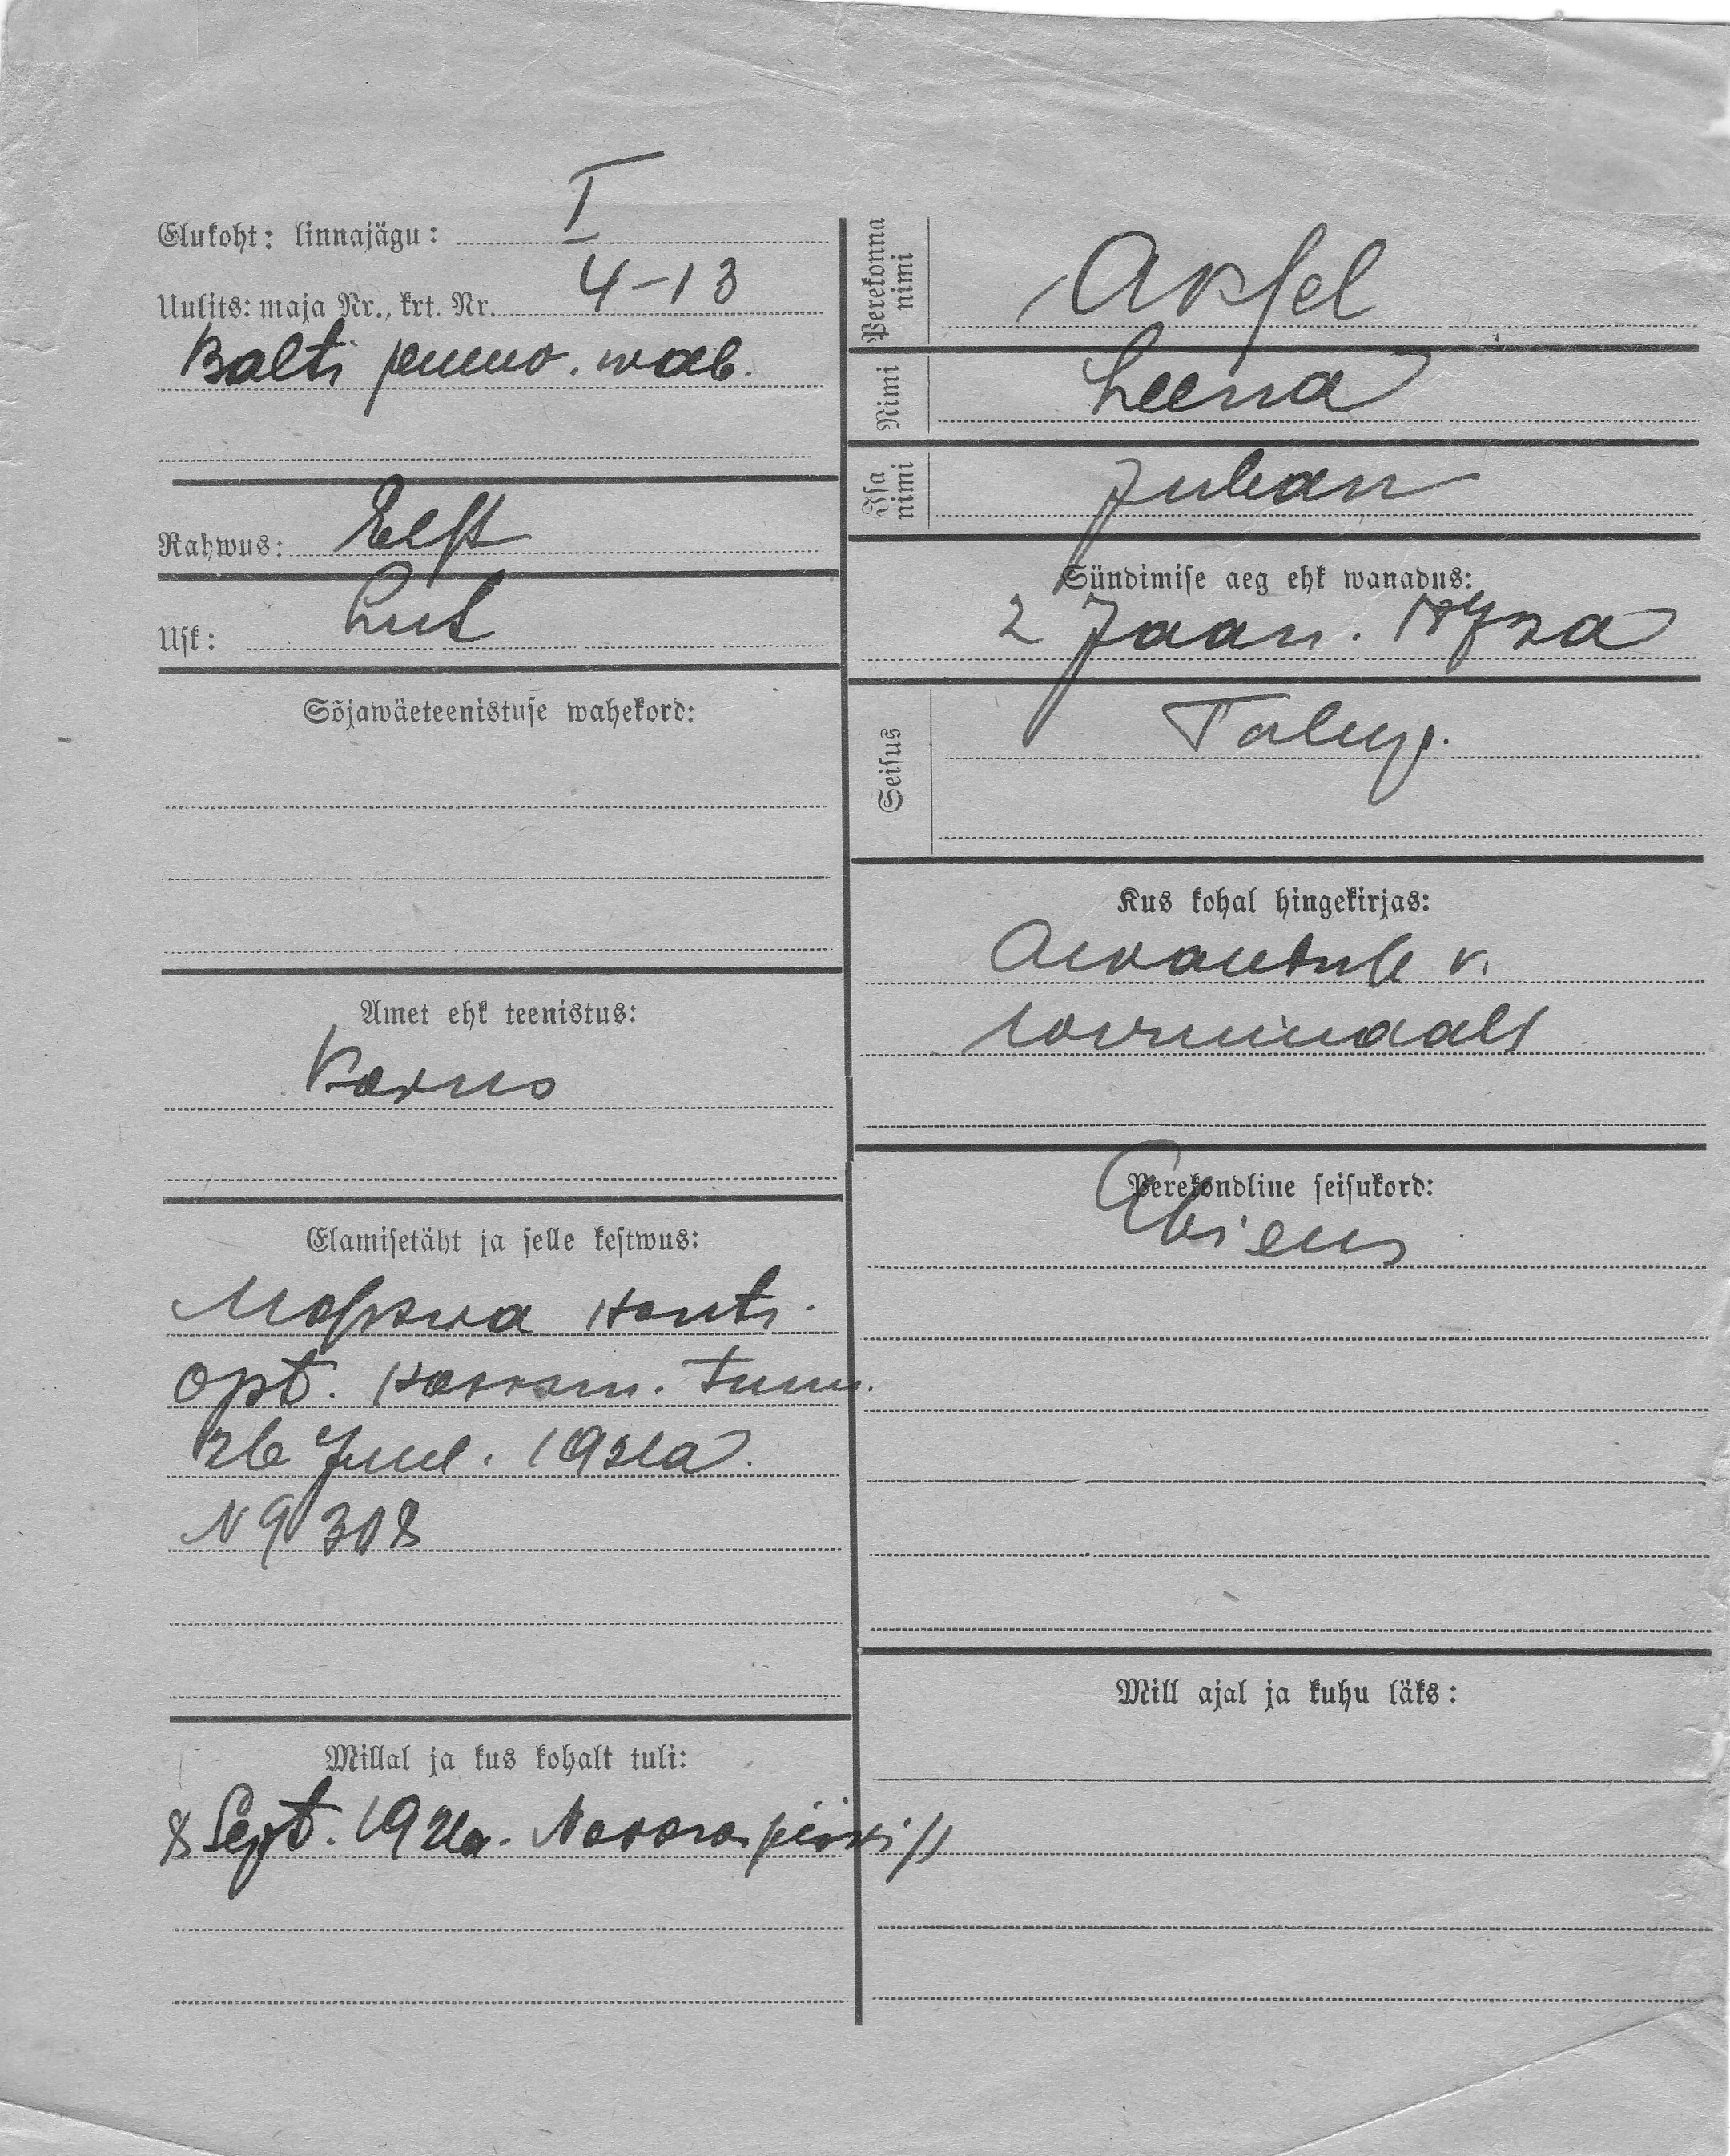 Elukoht: linnajägu: I
Uulits: maja Nr., krt. Nr. 4-13
Balti wab.
Rahwus: Eest
Usk: Lut
Sõjawäeteenistuse wahekord:
Amet ehk teenistus:
Elamisetäht ja selle kestwus:
Moskwa Kontr.
opt. tunn.
26 Juul. 1921a.
N 9308
Millal ja kus kohalt tuli:
8 Sept. 1921a. Narwa piirist
Perekonna nimi
Aksel
Nimi
Leena
Isa nimi
Juhan
Sündimise aeg ehk wanadus:
2 Jaan.
Seisus
Talup.
Kus kohal hingekirjas:
w.
Perekondline seisukord:
Abielus
Mill ajal ja kuhu läks: